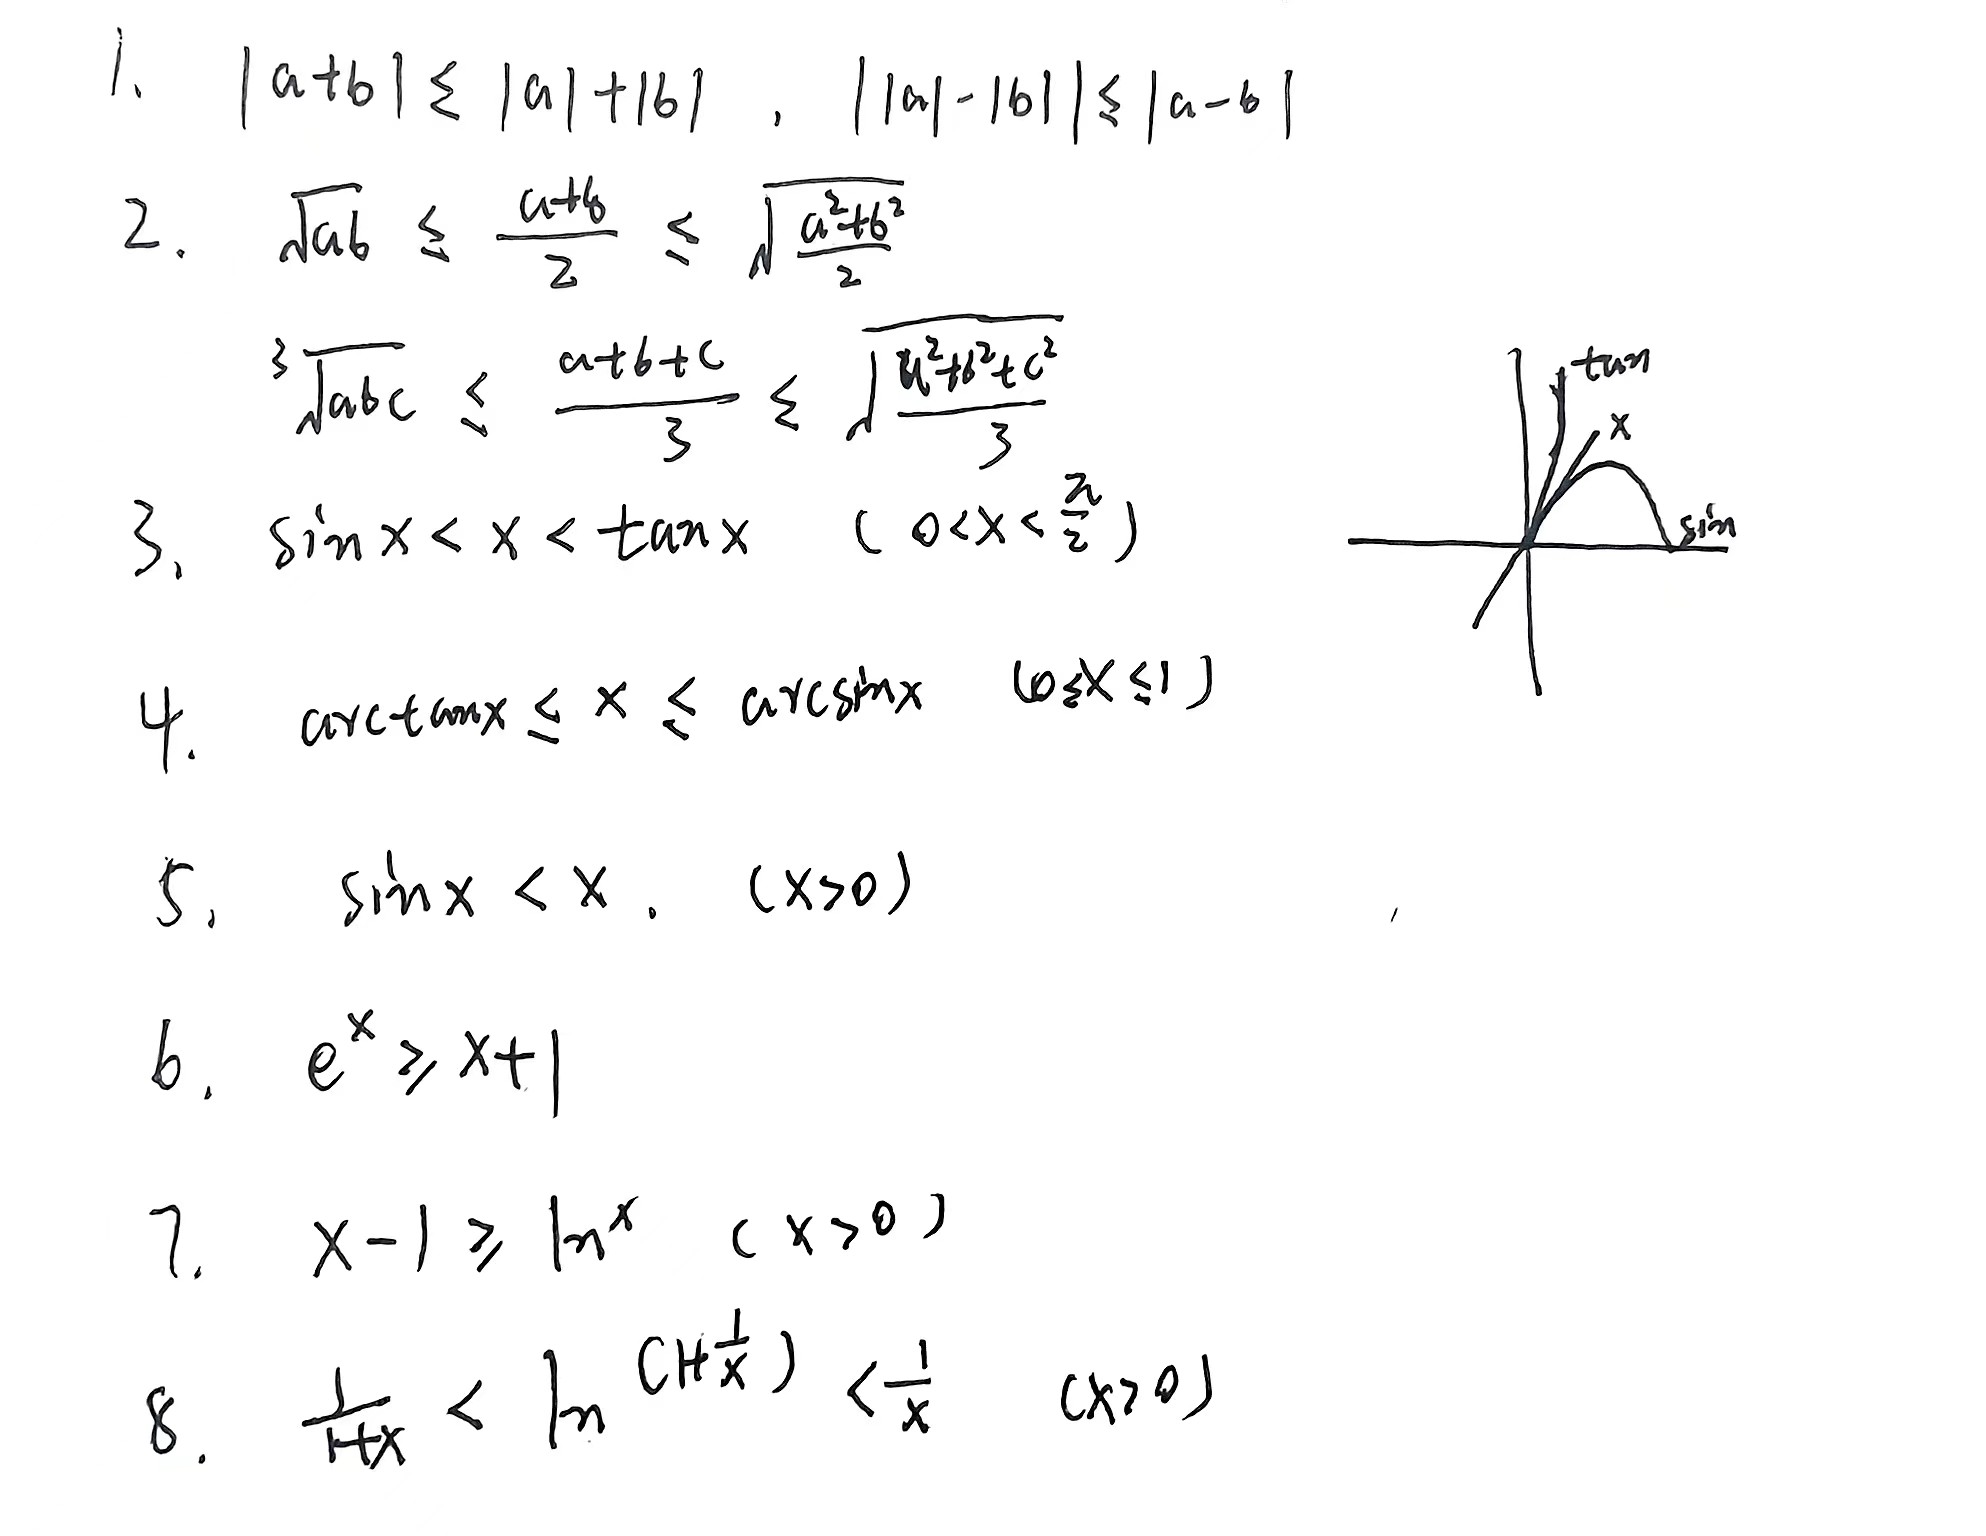 1. |a+b| ≤ |a|+|b| , ||a|-|b|| ≤ |a-b|
2. √(ab) ≤ (a+b)/2 ≤ √((a²+b²)/2)
³√(abc) ≤ (a+b+c)/3 ≤ √((a²+b²+c²)/3)
tan
x
sin
3. sin x < x < tan x ( 0<x<π/2 )
4. arctanx ≤ x ≤ arcsinx (0≤x≤1)
5. sin x < x . (x>0)
6. eˣ ≥ x+1
7. x-1 ≥ lnˣ (x>0)
8. 1/(1+x) < ln^(1+1/x) < 1/x (x>0)